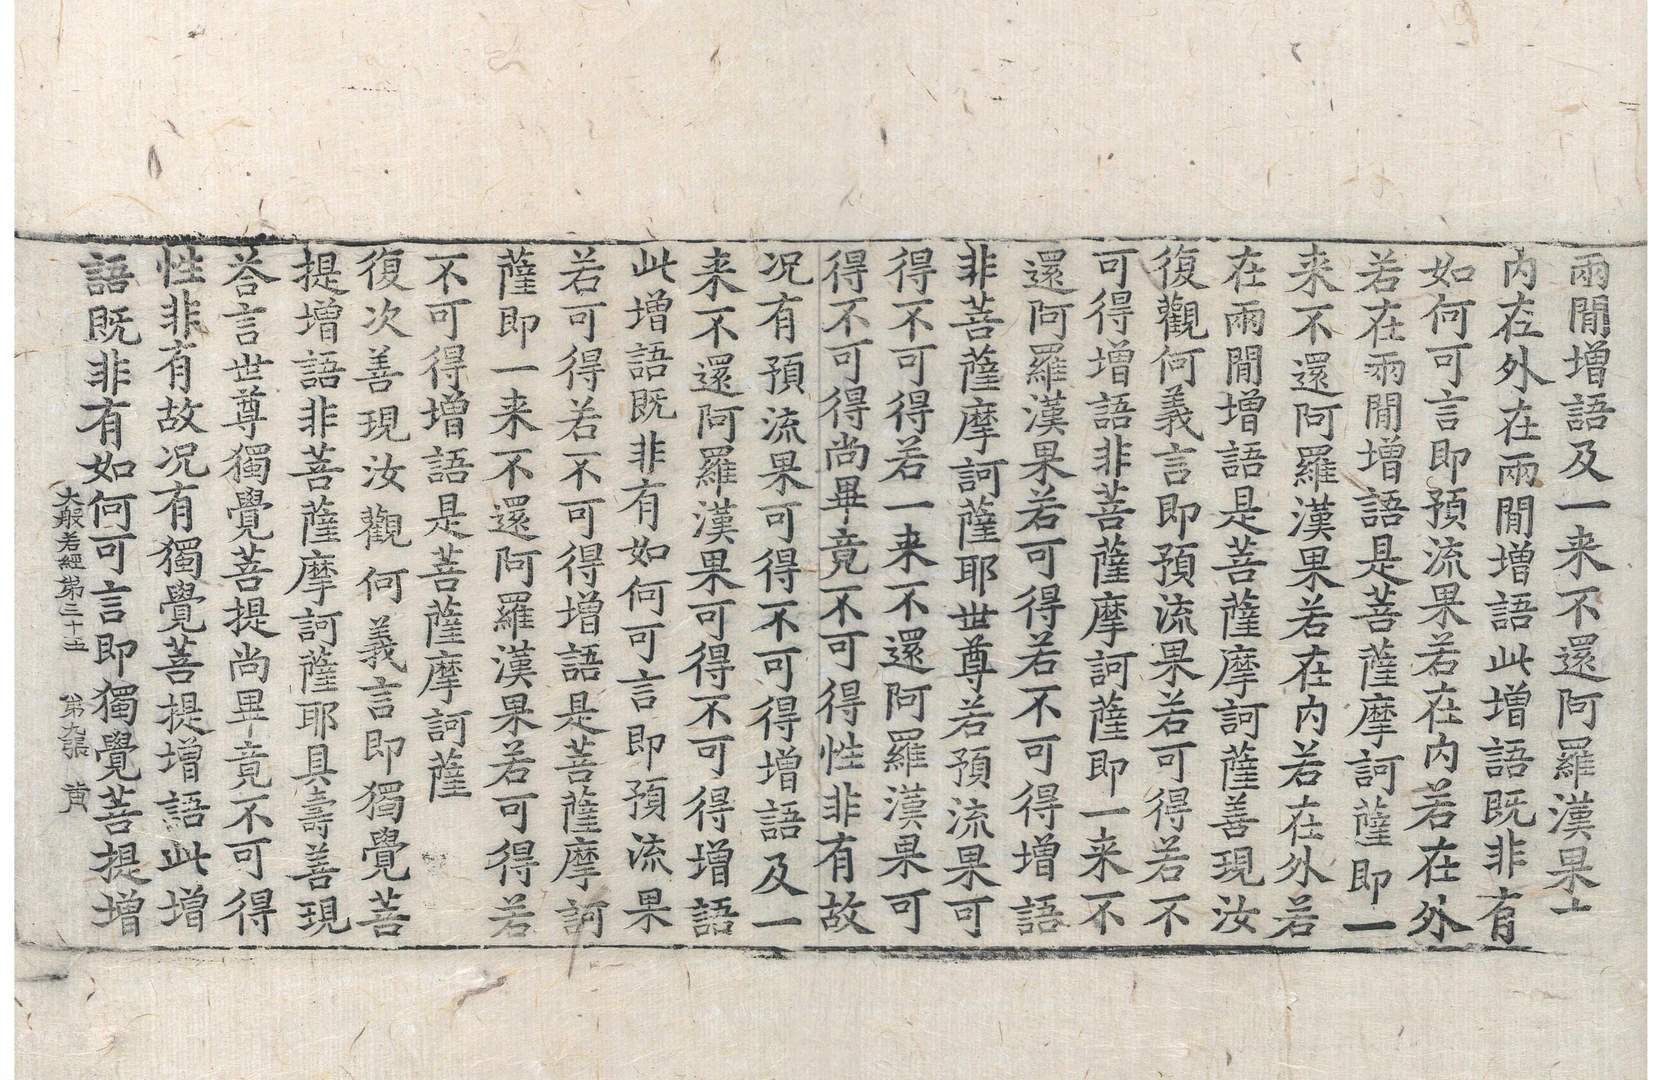 兩閒增語及一来不還阿羅漢果士
内在外在兩閒增語此增語既非有
如何可言即預流果若在内若在外
若在兩閒增語是菩薩摩訶薩即一
来不還阿羅漢果若在内若在外若
在兩閒增語是菩薩摩訶薩善現汝
復觀何義言即預流果若可得若不
可得增語非菩薩摩訶薩即一来不
還阿羅漢果若可得若不可得增語
非菩薩摩訶薩耶世尊若預流果可
得不可得若一来不還阿羅漢果可
得不可得尚畢竟不可得性非有故
况有預流果可得不可得增語及一
来不還阿羅漢果可得不可得增語
此增語既非有如何可言即預流果
若可得若不可得增語是菩薩摩訶
薩即一来不還阿羅漢果若可得若
不可得增語是菩薩摩訶薩
復次善現汝觀何義言即獨覺菩
提增語非菩薩摩訶薩耶具壽善現
荅言世尊獨覺菩提尚畢竟不可得
性非有故况有獨覺菩提增語此增
語既非有如何可言即獨覺菩提增
大般若經第三十五 第九張 黄